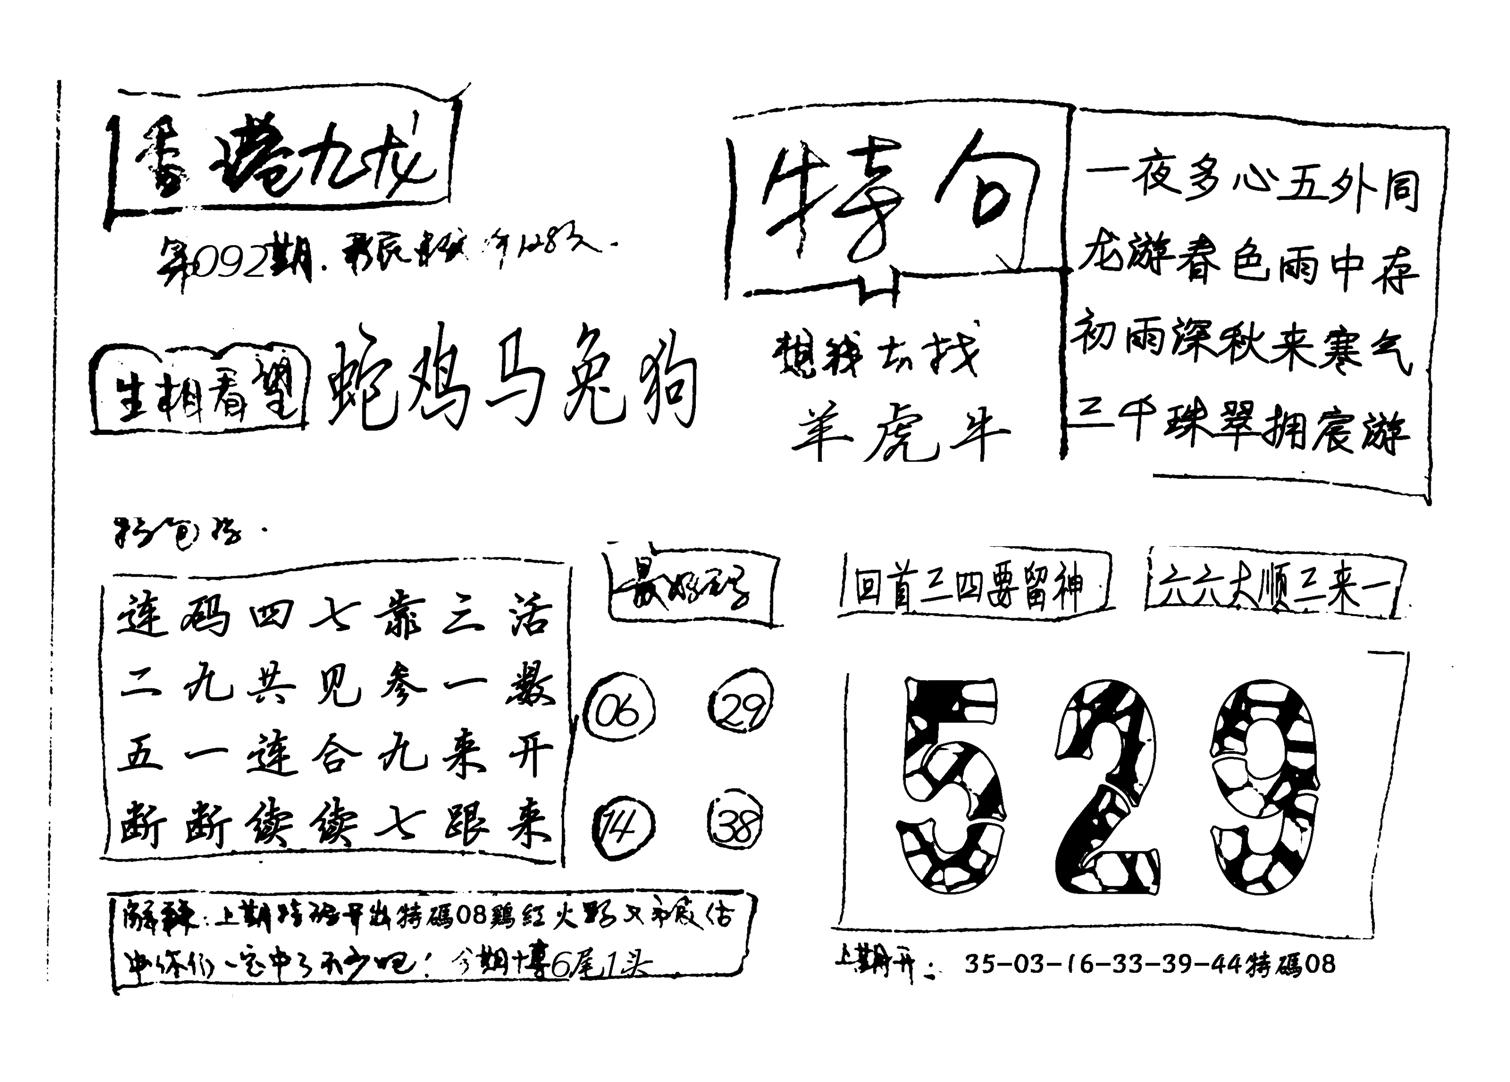 香港九龙
第092期.
生相看望
蛇鸡马兔狗
特句
想我去找
羊虎牛
一夜多心五外同
龙游春色雨中存
初雨深秋来寒气
三千珠翠拥宸游
连码四七靠三活
二九共见参一数
五一连合九来开
断断续续七跟来
最好码
06 29
14 38
回首三四要留神
六六大顺三来一
529
解释:上期特码开出特碼08鷄红火
你们一定中了不少吧! 今期博6尾1头
上期开: 35-03-16-33-39-44特碼08